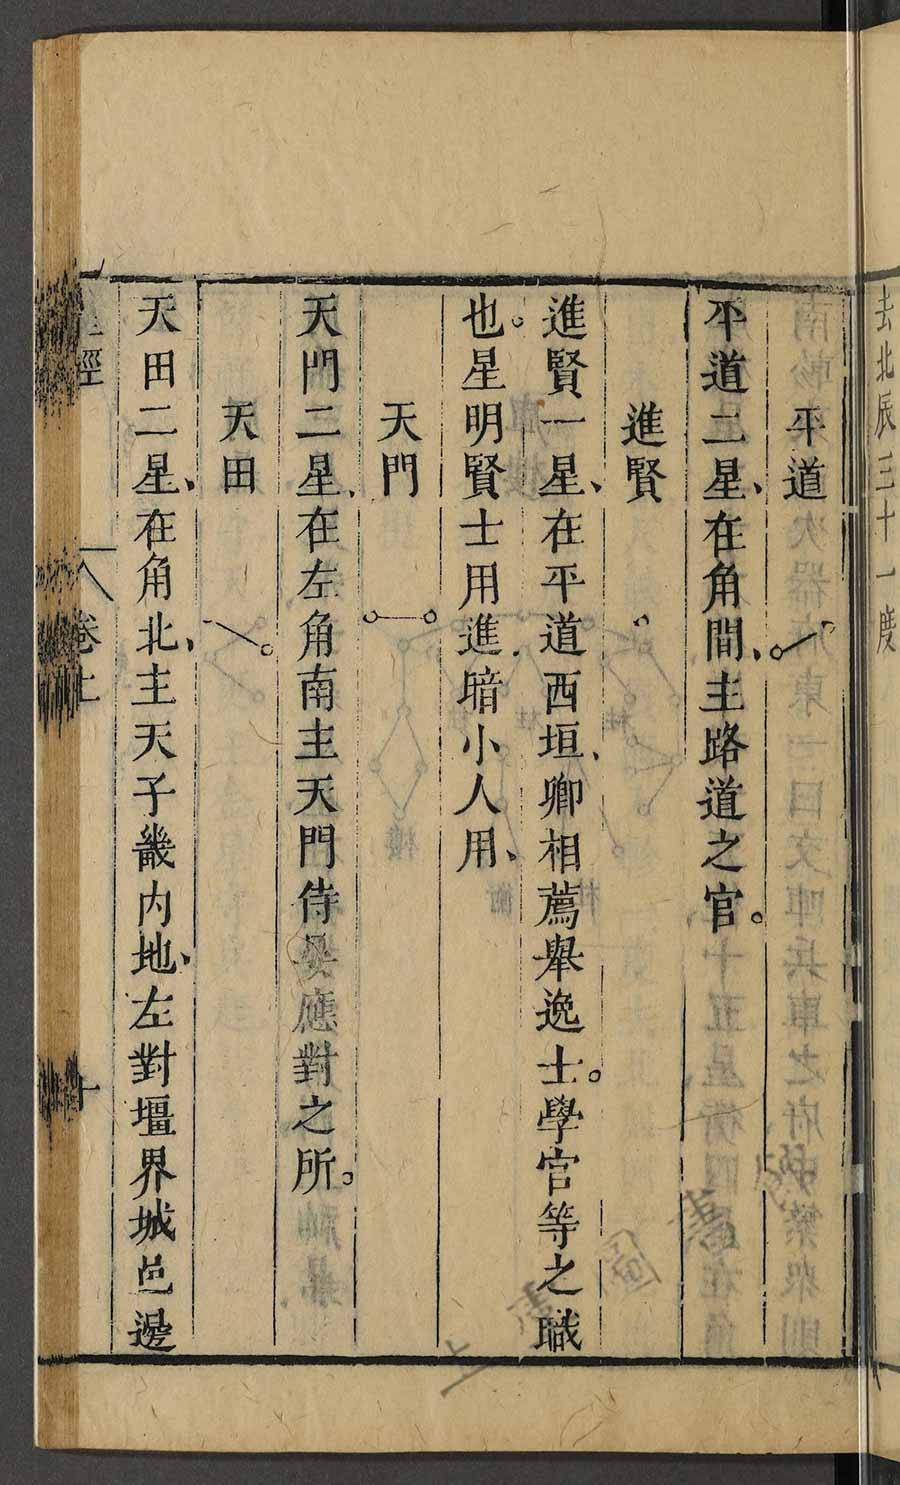 去北辰三十一度
平道
平道二星、在角間、主路道之官。
進賢
進賢一星、在平道西垣、卿相薦舉逸士。學官等之職
也。星明賢士用進、暗小人用、
天門
天門二星、在左角南主天門侍晏應對之所。
天田
天田二星、在角北、主天子畿内地、左對壃界城邑邊
經
卷上
十